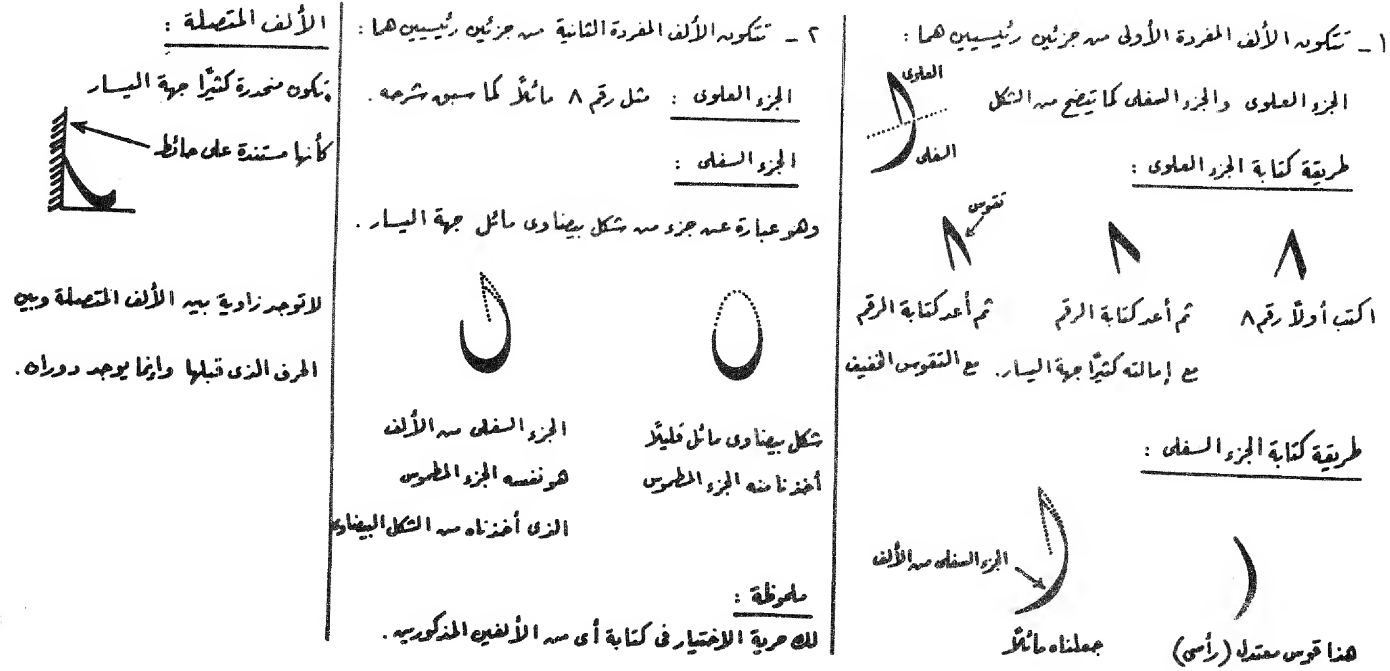 ١ - تتكون الألف المفردة الأولى من جزئين رئيسيين هما :
الجزء العلوى والجزء السفلى كما يتضح من الشكل
العلوى
السفلى
طريقة كتابة الجزء العلوى :
تقوس
٨
اكتب أولاً رقم ٨
ثم أعد كتابة الرقم
مع إمالته كثيرًا جهة اليسار.
ثم أعد كتابة الرقم
مع التقوس الخفيف
طريقة كتابة الجزء السفلى :
الجزء السفلى من الألف
هذا قوس معتدل (رأسى)
جعلناه مائلاً
٢ - تتكون الألف المفردة الثانية من جزئين رئيسيين هما :
الجزء العلوى : مثل رقم ٨ مائلاً كما سبق شرحه .
الجزء السفلى :
وهو عبارة عن جزء من شكل بيضاوى مائل جهة اليسار .
شكل بيضاوى مائل قليلاً
أخذنا منه الجزء المطموس
الجزء السفلى من الألف
هو نفسه الجزء المطموس
الذى أخذناه من الشكل البيضاوى
ملحوظة :
لك حرية الإختيار فى كتابة أى من الألفين المذكورين .
الألف المتصلة :
تكون منحدرة كثيرًا جهة اليسار
كأنها مستندة على حائط
لا توجد زاوية بين الألف المتصلة وبين
الحرف الذى قبلها وإنما يوجد دوران .